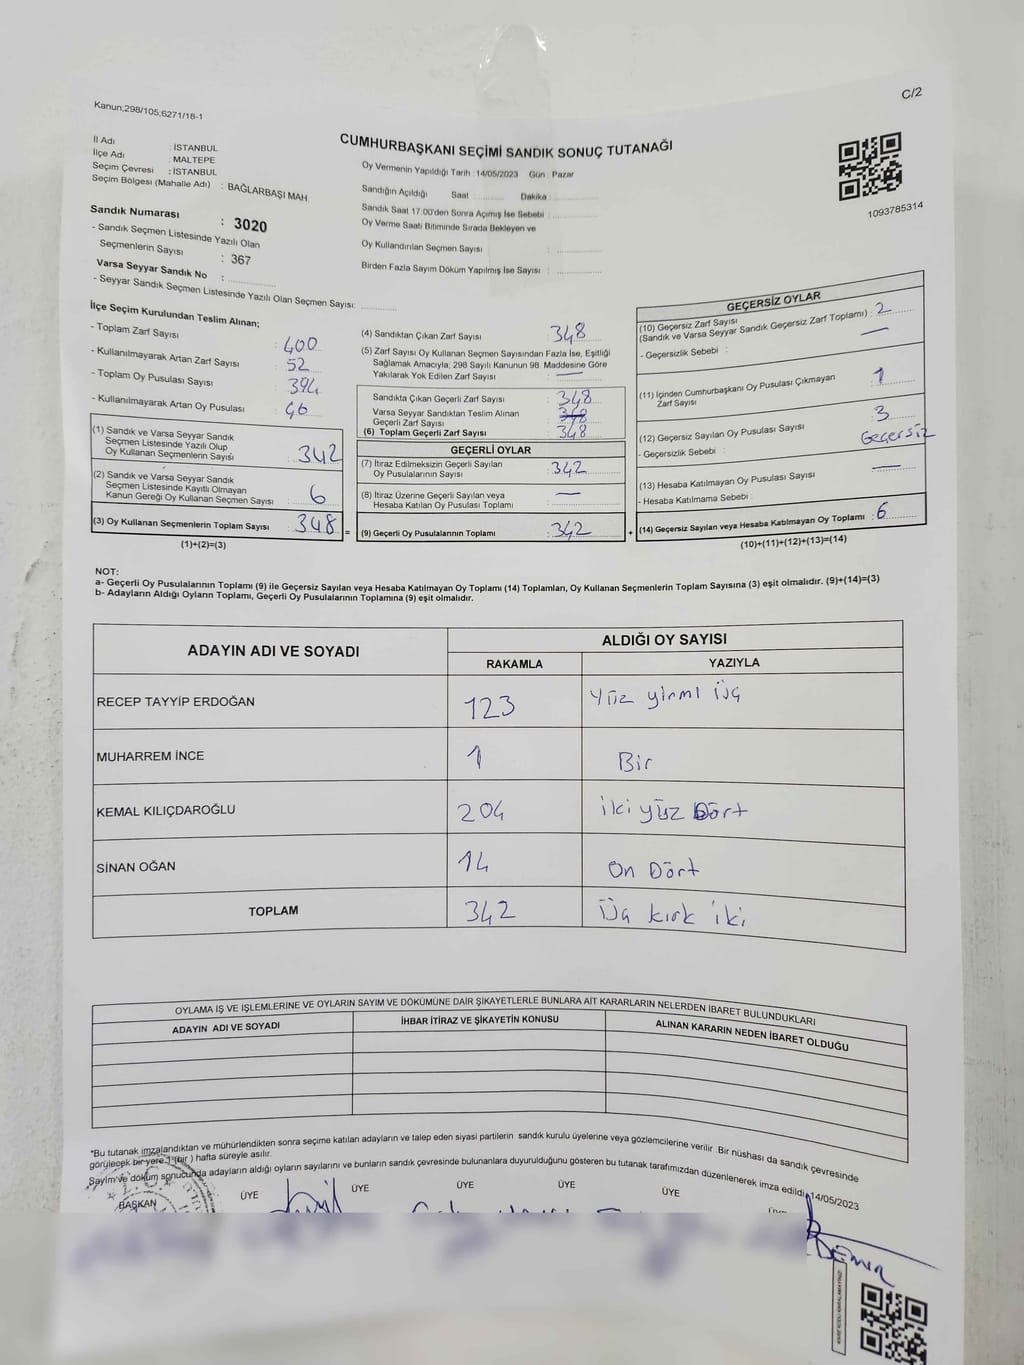 Kanun;298/105,6271/18-1
C/2
İl Adı : İSTANBUL
İlçe Adı : MALTEPE
Seçim Çevresi : İSTANBUL
Seçim Bölgesi (Mahalle Adı) : BAĞLARBAŞI MAH.
Sandık Numarası : 3020
- Sandık Seçmen Listesinde Yazılı Olan
Seçmenlerin Sayısı : 367
Varsa Seyyar Sandık No :
- Seyyar Sandık Seçmen Listesinde Yazılı Olan Seçmen Sayısı:
CUMHURBAŞKANI SEÇİMİ SANDIK SONUÇ TUTANAĞI
Oy Vermenin Yapıldığı Tarih :14/05/2023 Gün : Pazar
Sandığın Açıldığı Saat Dakika
Sandık Saat 17:00'den Sonra Açımış İse Sebebi :
Oy Verme Saati Bitiminde Sırada Bekleyen ve
Oy Kullandırılan Seçmen Sayısı :
Birden Fazla Sayım Döküm Yapılmış İse Sayısı :
1093785314
İlçe Seçim Kurulundan Teslim Alınan;
- Toplam Zarf Sayısı : 400
- Kullanılmayarak Artan Zarf Sayısı : 52
- Toplam Oy Pusulası Sayısı : 394
- Kullanılmayarak Artan Oy Pusulası : 46
(1) Sandık ve Varsa Seyyar Sandık
Seçmen Listesinde Yazılı Olup
Oy Kullanan Seçmenlerin Sayısı : 342
(2) Sandık ve Varsa Seyyar Sandık
Seçmen Listesinde Kayıtlı Olmayan
Kanun Gereği Oy Kullanan Seçmen Sayısı : 6
(3) Oy Kullanan Seçmenlerin Toplam Sayısı : 348 =
(1)+(2)=(3)
(4) Sandıktan Çıkan Zarf Sayısı : 348
(5) Zarf Sayısı Oy Kullanan Seçmen Sayısından Fazla İse, Eşitliği
Sağlamak Amacıyla; 298 Sayılı Kanunun 98. Maddesine Göre
Yakılarak Yok Edilen Zarf Sayısı : —
Sandıkta Çıkan Geçerli Zarf Sayısı : 348
Varsa Seyyar Sandıktan Teslim Alınan
Geçerli Zarf Sayısı : 348
(6) Toplam Geçerli Zarf Sayısı : 348
GEÇERLİ OYLAR
(7) İtiraz Edilmeksizin Geçerli Sayılan
Oy Pusulalarının Sayısı : 342
(8) İtiraz Üzerine Geçerli Sayılan veya
Hesaba Katılan Oy Pusulası Toplamı : —
(9) Geçerli Oy Pusulalarının Toplamı : 342 +
GEÇERSİZ OYLAR
(10) Geçersiz Zarf Sayısı : 2
(Sandık ve Varsa Seyyar Sandık Geçersiz Zarf Toplamı)
- Geçersizlik Sebebi : —
(11) İçinden Cumhurbaşkanı Oy Pusulası Çıkmayan
Zarf Sayısı : 1
(12) Geçersiz Sayılan Oy Pusulası Sayısı : 3
- Geçersizlik Sebebi : Geçersiz
(13) Hesaba Katılmayan Oy Pusulası Sayısı : —
- Hesaba Katılmama Sebebi :
(14) Geçersiz Sayılan veya Hesaba Katılmayan Oy Toplamı : 6
(10)+(11)+(12)+(13)=(14)
NOT:
a- Geçerli Oy Pusulalarının Toplamı (9) ile Geçersiz Sayılan veya Hesaba Katılmayan Oy Toplamı (14) Toplamları, Oy Kullanan Seçmenlerin Toplam Sayısına (3) eşit olmalıdır. (9)+(14)=(3)
b- Adayların Aldığı Oyların Toplamı, Geçerli Oy Pusulalarının Toplamına (9) eşit olmalıdır.
ADAYIN ADI VE SOYADI ALDIĞI OY SAYISI
RAKAMLA YAZIYLA
RECEP TAYYİP ERDOĞAN 123 Yüz yirmi üç
MUHARREM İNCE 1 Bir
KEMAL KILIÇDAROĞLU 204 iki yüz Dört
SİNAN OĞAN 14 On Dört
TOPLAM 342 üç kırk iki
OYLAMA İŞ VE İŞLEMLERİNE VE OYLARIN SAYIM VE DÖKÜMÜNE DAİR ŞİKAYETLERLE BUNLARA AİT KARARLARIN NELERDEN İBARET BULUNDUKLARI
ADAYIN ADI VE SOYADI İHBAR İTİRAZ VE ŞİKAYETİN KONUSU ALINAN KARARIN NEDEN İBARET OLDUĞU
*Bu tutanak imzalandıktan ve mühürlendikten sonra seçime katılan adayların ve talep eden siyasi partilerin sandık kurulu üyelerine veya gözlemcilerine verilir. Bir nüshası da sandık çevresinde
görülecek bir yere 1 (bir) hafta süreyle asılır.
Sayım ve döküm sonucunda adayların aldığı oyların sayılarını ve bunların sandık çevresinde bulunanlara duyurulduğunu gösteren bu tutanak tarafımızdan düzenlenerek imza edildi. 14/05/2023
BAŞKAN ÜYE ÜYE ÜYE ÜYE ÜYE